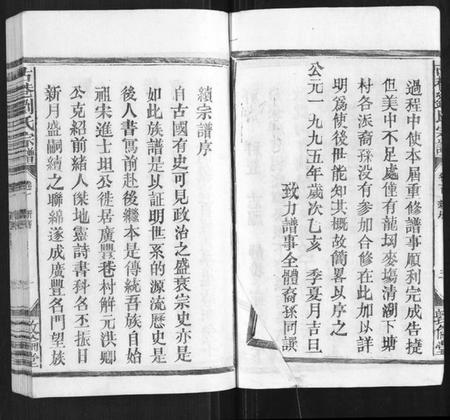 過程中使本屆重修譜事順利完成告捷
但美中不足處僅有龍坳麥塢清湖下塘
村各派裔孫没有參加合修在此加以詳
明爲使後世能知其概故簡畧以序之
公元一九九五年歲次乙亥 季夏月吉旦
致力譜事全體裔孫同譔
續宗譜序
自古國有史可見政治之盛衰宗史亦是
如此族譜是以証明世系的源流歷史是
後人書寫前赴後繼本是傳統吾族自始
祖宋進士坦公徙居廣豐巷村解元洪卿
公克紹前緒人傑地靈詩書科名丕振日
新月盛嗣續之聯綿遂成廣豐名門望族